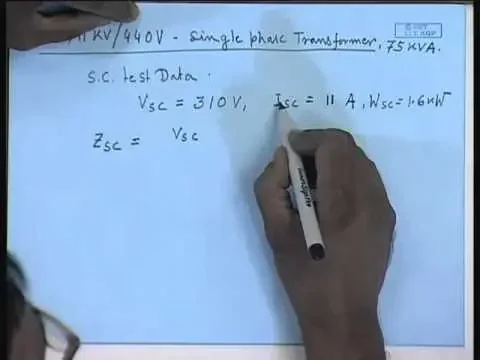 11KV/440V - Single phase Transformer, 75KVA.
S.C. test Data.
Vsc = 310V, Isc = 11 A, Wsc = 1.6KW
Zsc = Vsc